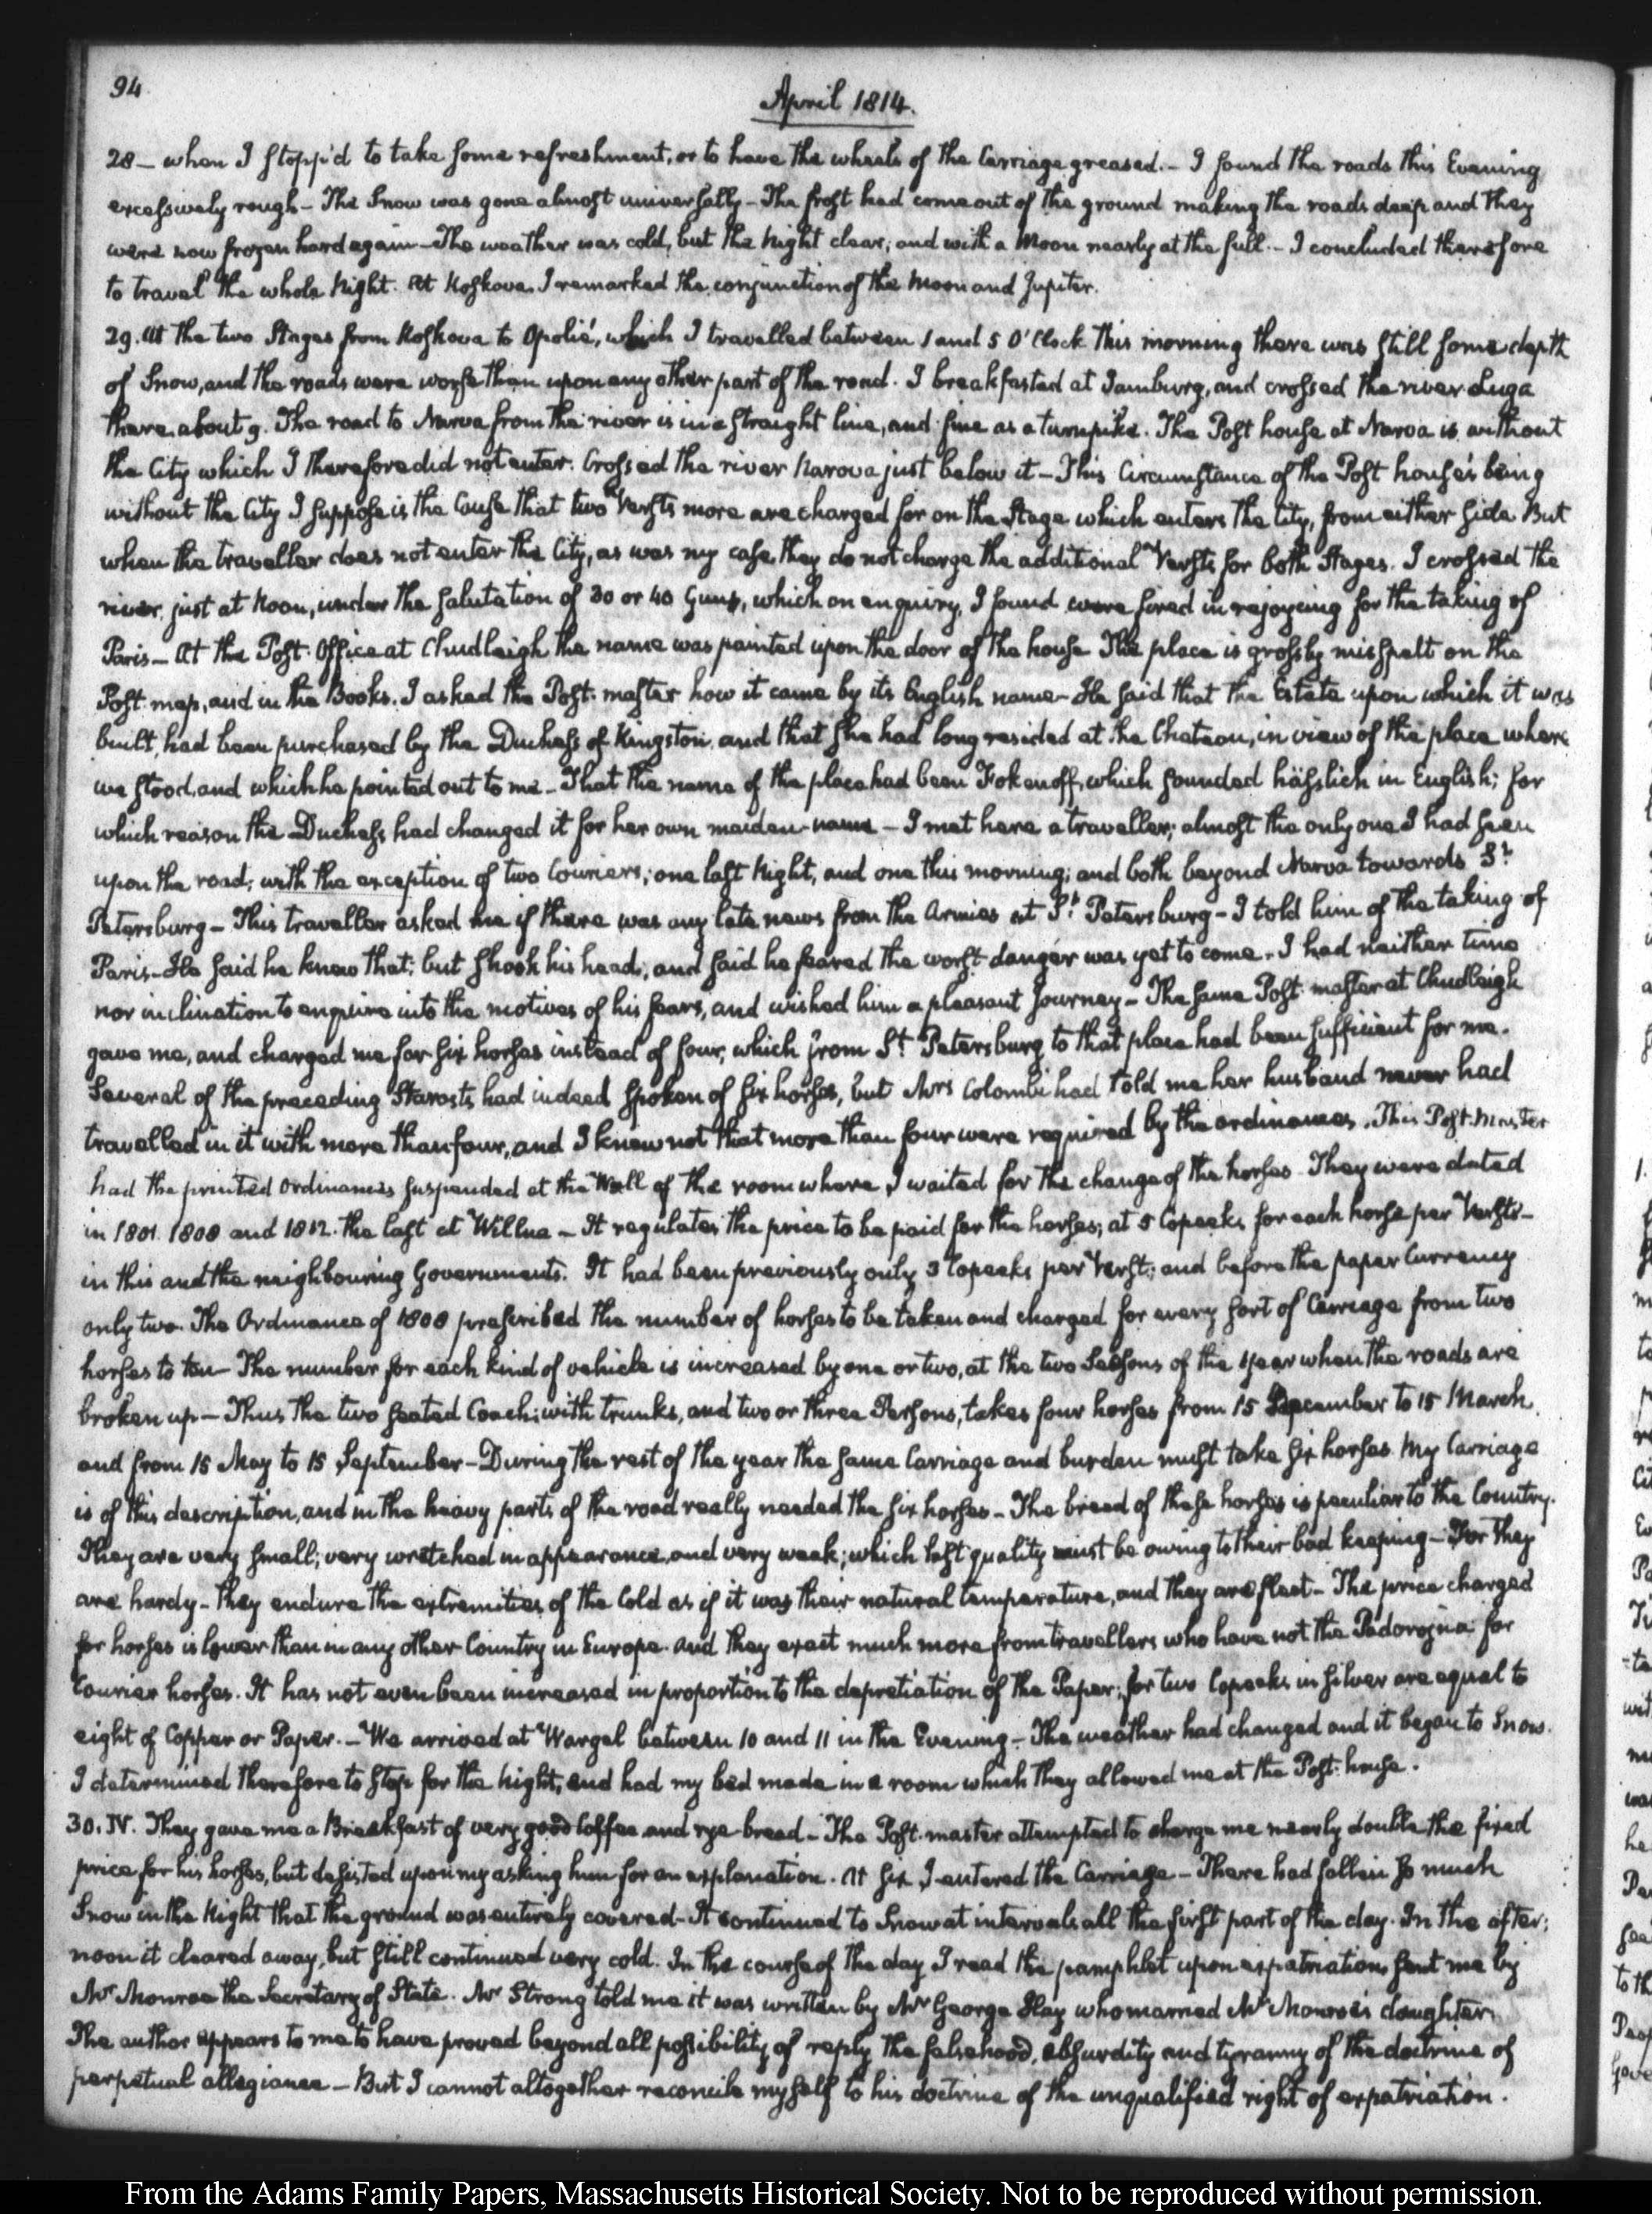 94
April 1814.
28 — when I stopp'd to take some refreshment, or to have the wheels of the Carriage greased. — I found the roads this Evening
excessively rough — The Snow was gone almost universally — The frost had come out of the ground making the roads deep and they
were now frozen hard again — The weather was cold, but the Night clear; and with a Moon nearly at the full. — I concluded therefore
to travel the whole Night. At Koskova I remarked the conjunction of the Moon and Jupiter.
29. At the two Stages from Koskova to Opolié, which I travelled between 1 and 5 O'Clock this morning there was still some depth
of Snow, and the roads were worse than upon any other part of the road. I breakfasted at Jamburg, and crossed the river Luga
there about 9. The road to Narva from the river is in a straight line, and fine as a turnpike. The Post house at Narva is without
the City which I therefore did not enter. Crossed the river Narova just below it — This Circumstance of the Post house's being
without the City I suppose is the Cause that two Versts more are charged for on the Stage which enters the City, from either side. But
when the traveller does not enter the City, as was my case, they do not charge the additional Versts for both Stages. I crossed the
river, just at Noon, under the salutation of 30 or 40 Guns, which on enquiry, I found were fired in rejoycing for the taking of
Paris — At the Post-Office at Chudleigh the name was painted upon the door of the house. The place is grossly misspelt on the
Post-map, and in the Books. I asked the Post-master how it came by its English name — He said that the Estate upon which it was
built, had been purchased by the Duchess of Kingston, and that she had long resided at the Chateau, in view of the place where
we stood, and which he pointed out to me — That the name of the place had been Fokenoff, which sounded hässlich in English; for
which reason the Duchess had changed it for her own maiden-name — I met here a traveller; almost the only one I had seen
upon the road; with the exception of two Couriers; one last Night, and one this morning; and both beyond Narva towards St.
Petersburg — This traveller asked me if there was any late news from the Armies at St. Petersburg — I told him of the taking of
Paris — He said he knew that; but shook his head; and said he feared the worst danger was yet to come. I had neither time
nor inclination to enquire into the motives of his fears, and wished him a pleasant Journey — The same Post-master at Chudleigh
gave me, and charged me for six horses instead of four, which from St. Petersburg to that place had been sufficient for me.
Several of the preceding Starosts had indeed spoken of six horses, but Mrs Colombi had told me her husband never had
travelled in it with more than four, and I knew not that more than four were required by the ordinances. This Post-Master
had the printed ordinances suspended at the Wall of the room where I waited for the change of the horses. They were dated
in 1801. 1808 and 1812. the last at Willna — It regulates the price to be paid for the horses; at 5 Copeeks for each horse per Verst —
in this and the neighbouring Governments. It had been previously only 3 Copeeks per Verst; and before the paper Currency
only two. The Ordinance of 1808 prescribed the number of horses to be taken and charged for every sort of Carriage from two
horses to ten — The number for each kind of vehicle is increased by one or two, at the two Seasons of the year when the roads are
broken up — Thus the two seated Coach; with trunks, and two or three Persons, takes four horses from 15 December to 15 March,
and from 15 May to 15 September — During the rest of the year the same Carriage and burden must take six horses. My Carriage
is of this description, and in the heavy parts of the road really needed the six horses — The breed of these horses is peculiar to the Country.
They are very small; very wretched in appearance, and very weak; which last quality must be owing to their bad keeping — For they
are hardy — they endure the extremities of the Cold as if it was their natural temperature, and they are fleet — The price charged
for horses is lower than in any other Country in Europe. And they exact much more from travellers who have not the Padorojna for
Courier horses. It has not even been increased in proportion to the depretiation of the Paper; for two Copeeks in silver are equal to
eight of Copper or Paper. — We arrived at Wargel between 10 and 11 in the Evening — The weather had changed and it began to Snow.
I determined therefore to stop for the Night, and had my bed made in a room which they allowed me at the Post-house.
30. IV. They gave me a Breakfast of very good Coffee and rye-bread — The Post-master attempted to charge me nearly double the fixed
price for his horses, but desisted upon my asking him for an explanation. At six I entered the Carriage — There had fallen so much
Snow in the Night that the ground was entirely covered — It continued to Snow at intervals all the first part of the day. In the after-
noon it cleared away, but still continued very cold. In the course of the day I read the pamphlet upon expatriation, sent me by
Mr Monroe the Secretary of State. Mr Strong told me it was written by Mr George Hay who married Mr Monroe's daughter.
The author appears to me to have proved beyond all possibility of reply the falsehood, absurdity and tyranny of the doctrine of
perpetual allegiance — But I cannot altogether reconcile myself to his doctrine of the unqualified right of expatriation.
From the Adams Family Papers, Massachusetts Historical Society. Not to be reproduced without permission.